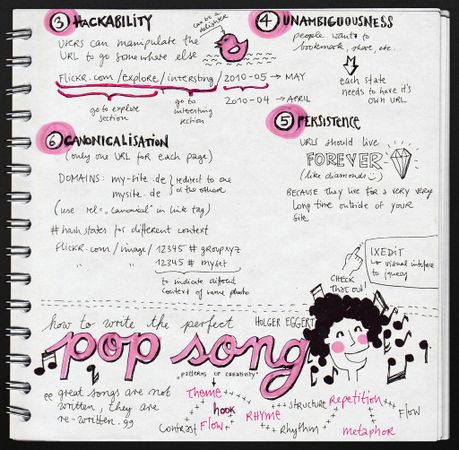 ③ HACKABILITY
USERS can manipulate the
URL to go somewhere else
can be a
delighter
FLICKR.com / explore / intersting / 2010-05 → MAY
2010-04 → APRIL
go to explore
section
go to
interesting
section
④ UNAMBIGUOUSNESS
people want to
bookmark, share, etc...
each state
needs to have it's
own URL
⑥ CANONICALISATION
(only one URL for each page)
DOMAINS: my-site.de } redirect to one
mysite.de } or the other
(use rel="canonical" in link tag)
# hash states for different context
FLICKR.com / image / 12345 # groupxyz
" " 12345 # myset
to indicate different
context of same photo
⑤ PERSISTENCE
URLs should live
FOREVER
(like diamonds :))
BECAUSE they live for a very very
long time outside of your
site
IXEDIT
↳ visual interface
to jquery
CHECK
THAT OUT!
how to write the perfect
HOLGER EGGERT
pop song
"patterns of creativity"
great songs are not
written, they are
re-written.
Theme
hook
Contrast Flow
RHYME
Rhythm
structure Repetition
Flow
metaphor